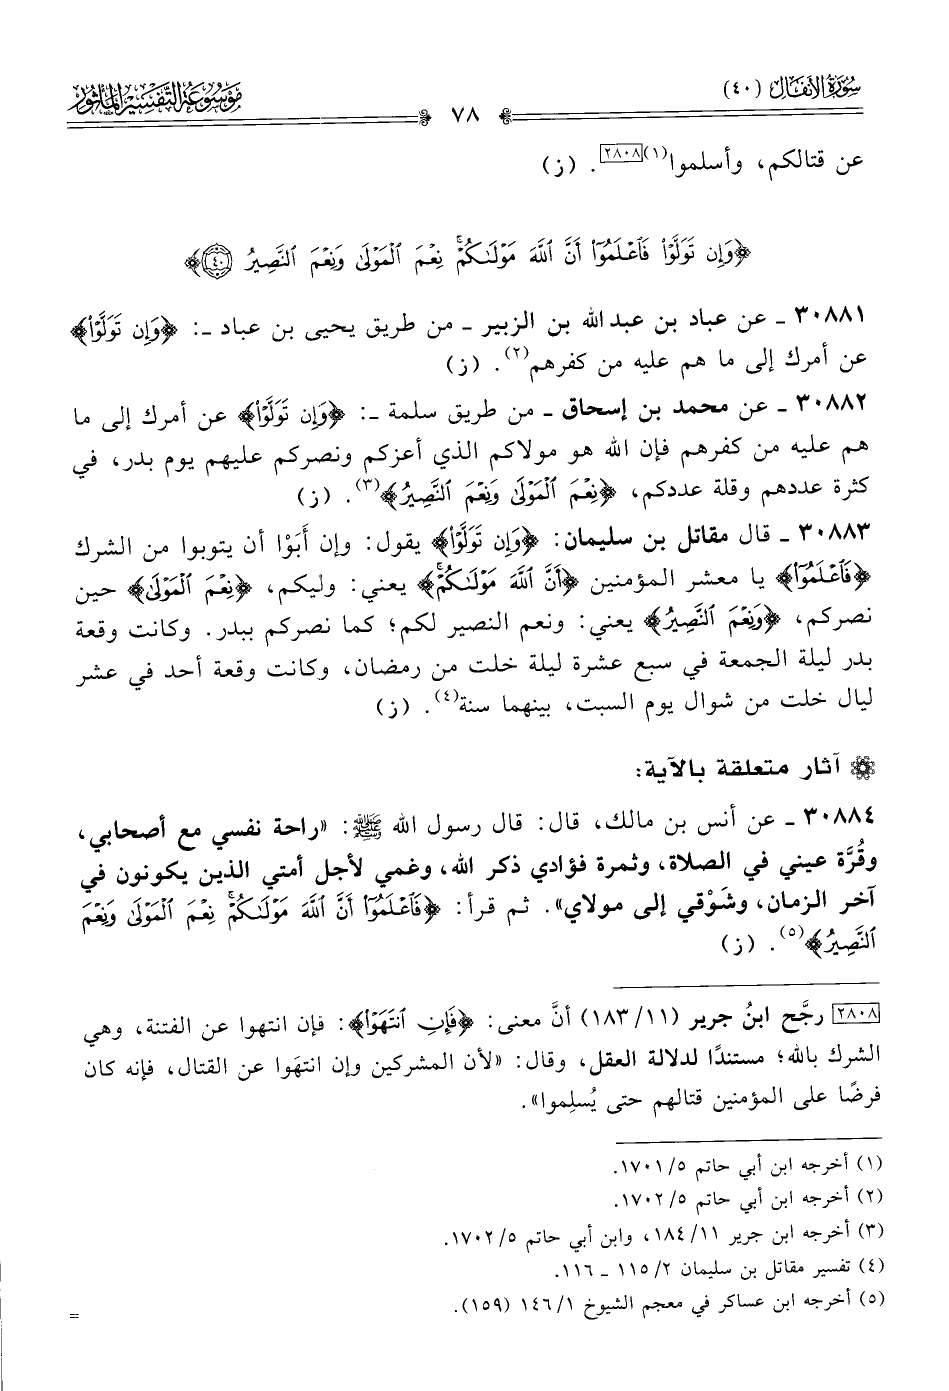 سورة الأنفال (٤٠)
٧٨
موسوعة التفسير المأثور
عن قتالكم، وأسلموا(١)[٢٨٠٨]. (ز)
﴿وَإِن تَوَلَّوْا۟ فَٱعْلَمُوٓا۟ أَنَّ ٱللَّهَ مَوْلَىٰكُمْ ۚ نِعْمَ ٱلْمَوْلَىٰ وَنِعْمَ ٱلنَّصِيرُ ﴿٤٠﴾﴾
٣٠٨٨١ ـ عن عباد بن عبد الله بن الزبير ـ من طريق يحيى بن عباد ـ: ﴿وَإِن تَوَلَّوْا۟﴾
عن أمرك إلى ما هم عليه من كفرهم(٢). (ز)
٣٠٨٨٢ ـ عن محمد بن إسحاق ـ من طريق سلمة ـ: ﴿وَإِن تَوَلَّوْا۟﴾ عن أمرك إلى ما
هم عليه من كفرهم فإن الله هو مولاكم الذي أعزكم ونصركم عليهم يوم بدر، في
كثرة عددهم وقلة عددكم، ﴿نِعْمَ ٱلْمَوْلَىٰ وَنِعْمَ ٱلنَّصِيرُ﴾(٣). (ز)
٣٠٨٨٣ ـ قال مقاتل بن سليمان: ﴿وَإِن تَوَلَّوْا۟﴾ يقول: وإن أَبَوْا أن يتوبوا من الشرك
﴿فَٱعْلَمُوٓا۟﴾ يا معشر المؤمنين ﴿أَنَّ ٱللَّهَ مَوْلَىٰكُمْ ۚ﴾ يعني: وليكم، ﴿نِعْمَ ٱلْمَوْلَىٰ﴾ حين
نصركم، ﴿وَنِعْمَ ٱلنَّصِيرُ﴾ يعني: ونعم النصير لكم؛ كما نصركم ببدر. وكانت وقعة
بدر ليلة الجمعة في سبع عشرة ليلة خلت من رمضان، وكانت وقعة أحد في عشر
ليال خلت من شوال يوم السبت، بينهما سنة(٤). (ز)
آثار متعلقة بالآية:
٣٠٨٨٤ ـ عن أنس بن مالك، قال: قال رسول الله ﷺ: «راحة نفسي مع أصحابي،
وقُرَّة عيني في الصلاة، وثمرة فؤادي ذكر الله، وغمي لأجل أمتي الذين يكونون في
آخر الزمان، وشَوْقي إلى مولاي». ثم قرأ: ﴿فَٱعْلَمُوٓا۟ أَنَّ ٱللَّهَ مَوْلَىٰكُمْ ۚ نِعْمَ ٱلْمَوْلَىٰ وَنِعْمَ
ٱلنَّصِيرُ﴾(٥). (ز)
[٢٨٠٨] رجَّح ابنُ جرير (١١/ ١٨٣) أنَّ معنى: ﴿فَإِنِ ٱنتَهَوْا۟﴾: فإن انتهوا عن الفتنة، وهي
الشرك بالله؛ مستندًا لدلالة العقل، وقال: «لأن المشركين وإن انتهَوا عن القتال، فإنه كان
فرضًا على المؤمنين قتالهم حتى يُسلِموا».
(١) أخرجه ابن أبي حاتم ٥/ ١٧٠١.
(٢) أخرجه ابن أبي حاتم ٥/ ١٧٠٢.
(٣) أخرجه ابن جرير ١١/ ١٨٤، وابن أبي حاتم ٥/ ١٧٠٢.
(٤) تفسير مقاتل بن سليمان ٢/ ١١٥ ـ ١١٦.
(٥) أخرجه ابن عساكر في معجم الشيوخ ١/ ١٤٦ (١٥٩).
=